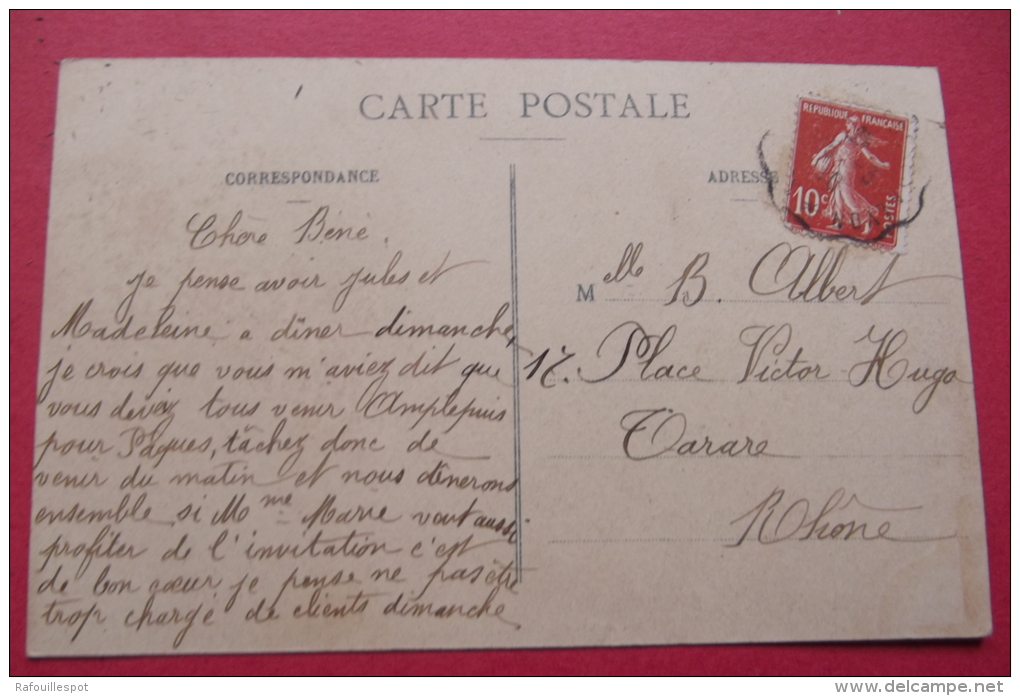 CARTE POSTALE
CORRESPONDANCE
Chère Béné.
je pense avoir Jules et
Madeleine a dîner dimanche,
je crois que vous m'aviez dit que
vous deviez tous venir Amplepuis
pour Pâques, tâchez donc de
venir du matin et nous dînerons
ensemble, si Mme Marie veut aussi
profiter de l'invitation c'est
de bon cœur je pense ne pas être
trop chargé de clients dimanche
ADRESSE
REPUBLIQUE FRANÇAISE
10c
POSTES
Melle B. Albert
17. Place Victor Hugo
Tarare
Rhône
Rafouillespot
www.delcampe.net